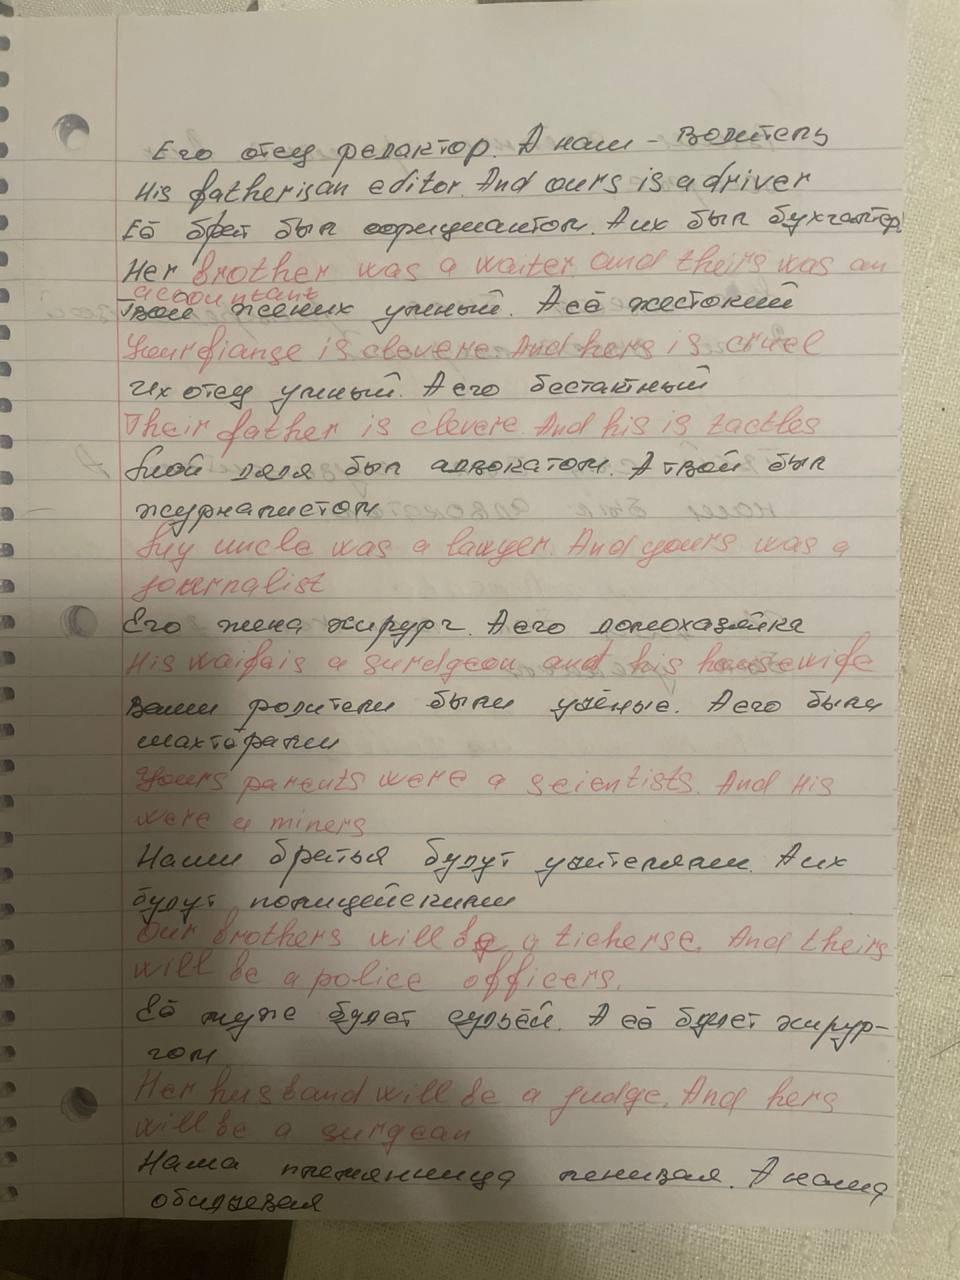 Его отец редактор. А наш - водитель
His father is an editor. And ours is a driver
Её брат был официантом. А их был бухгалтер
Her brother was a waiter and theirs was an
accountant
Твой жених умный. А её жестокий
Your fiange is clevere. And hers is cruel
Их отец умный. А его бестактный
Their father is clevere And his is tactles
Мой дядя был адвокатом. А твой был
журналистом
My uncle was a lawyer. And yours was a
journalist
Его жена хирург. А его домохазяйка
His waifais a surdgeon and his housewife
Ваши родители были учёные. А его были
шахтёрами
Yours parents were a scientists. And His
were a miners
Наши братья будут учителями. А их
будут полицейскими
Our brothers will be a ticherse. And theirs
will be a police officers.
Её муже будет судьёй. А её будет хирур-
гом
Her husband will be a judge. And hers
will be a surgean
Наша племянница ленивая. А наша
обидчевая